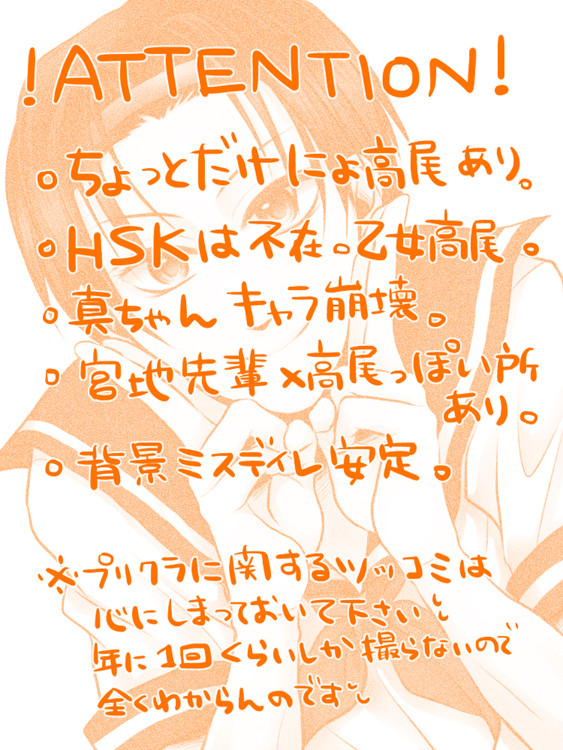 !ATTENTION!
○ちょっとだけにょ高尾あり。
○HSKは不在。乙女高尾。
○真ちゃんキャラ崩壊。
○宮地先輩×高尾っぽい所
あり。
○背景ミスディレ安定。
※プリクラに関するツッコミは
心にしまっておいて下さい
年に1回くらいしか撮らないので
全くわからんのです